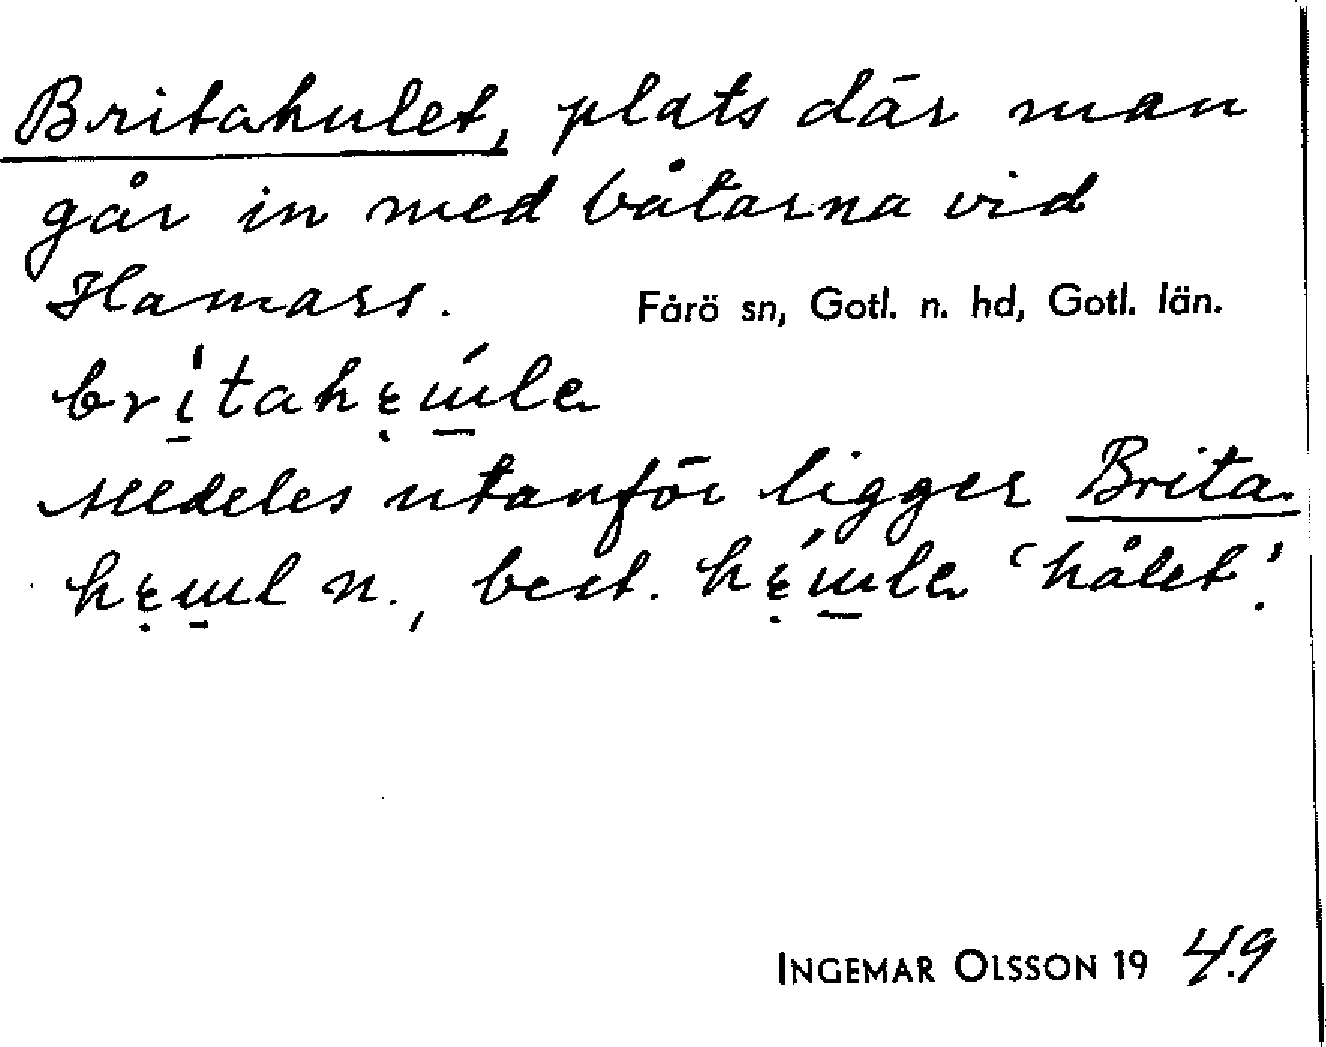 Britahulet, plats där man
går in med båtarna vid
Hamars. Fårö sn, Gotl. n. hd, Gotl. län.
Alldeles utanför ligger Brita.
n., best. 'hålet'.
INGEMAR OLSSON 19 49